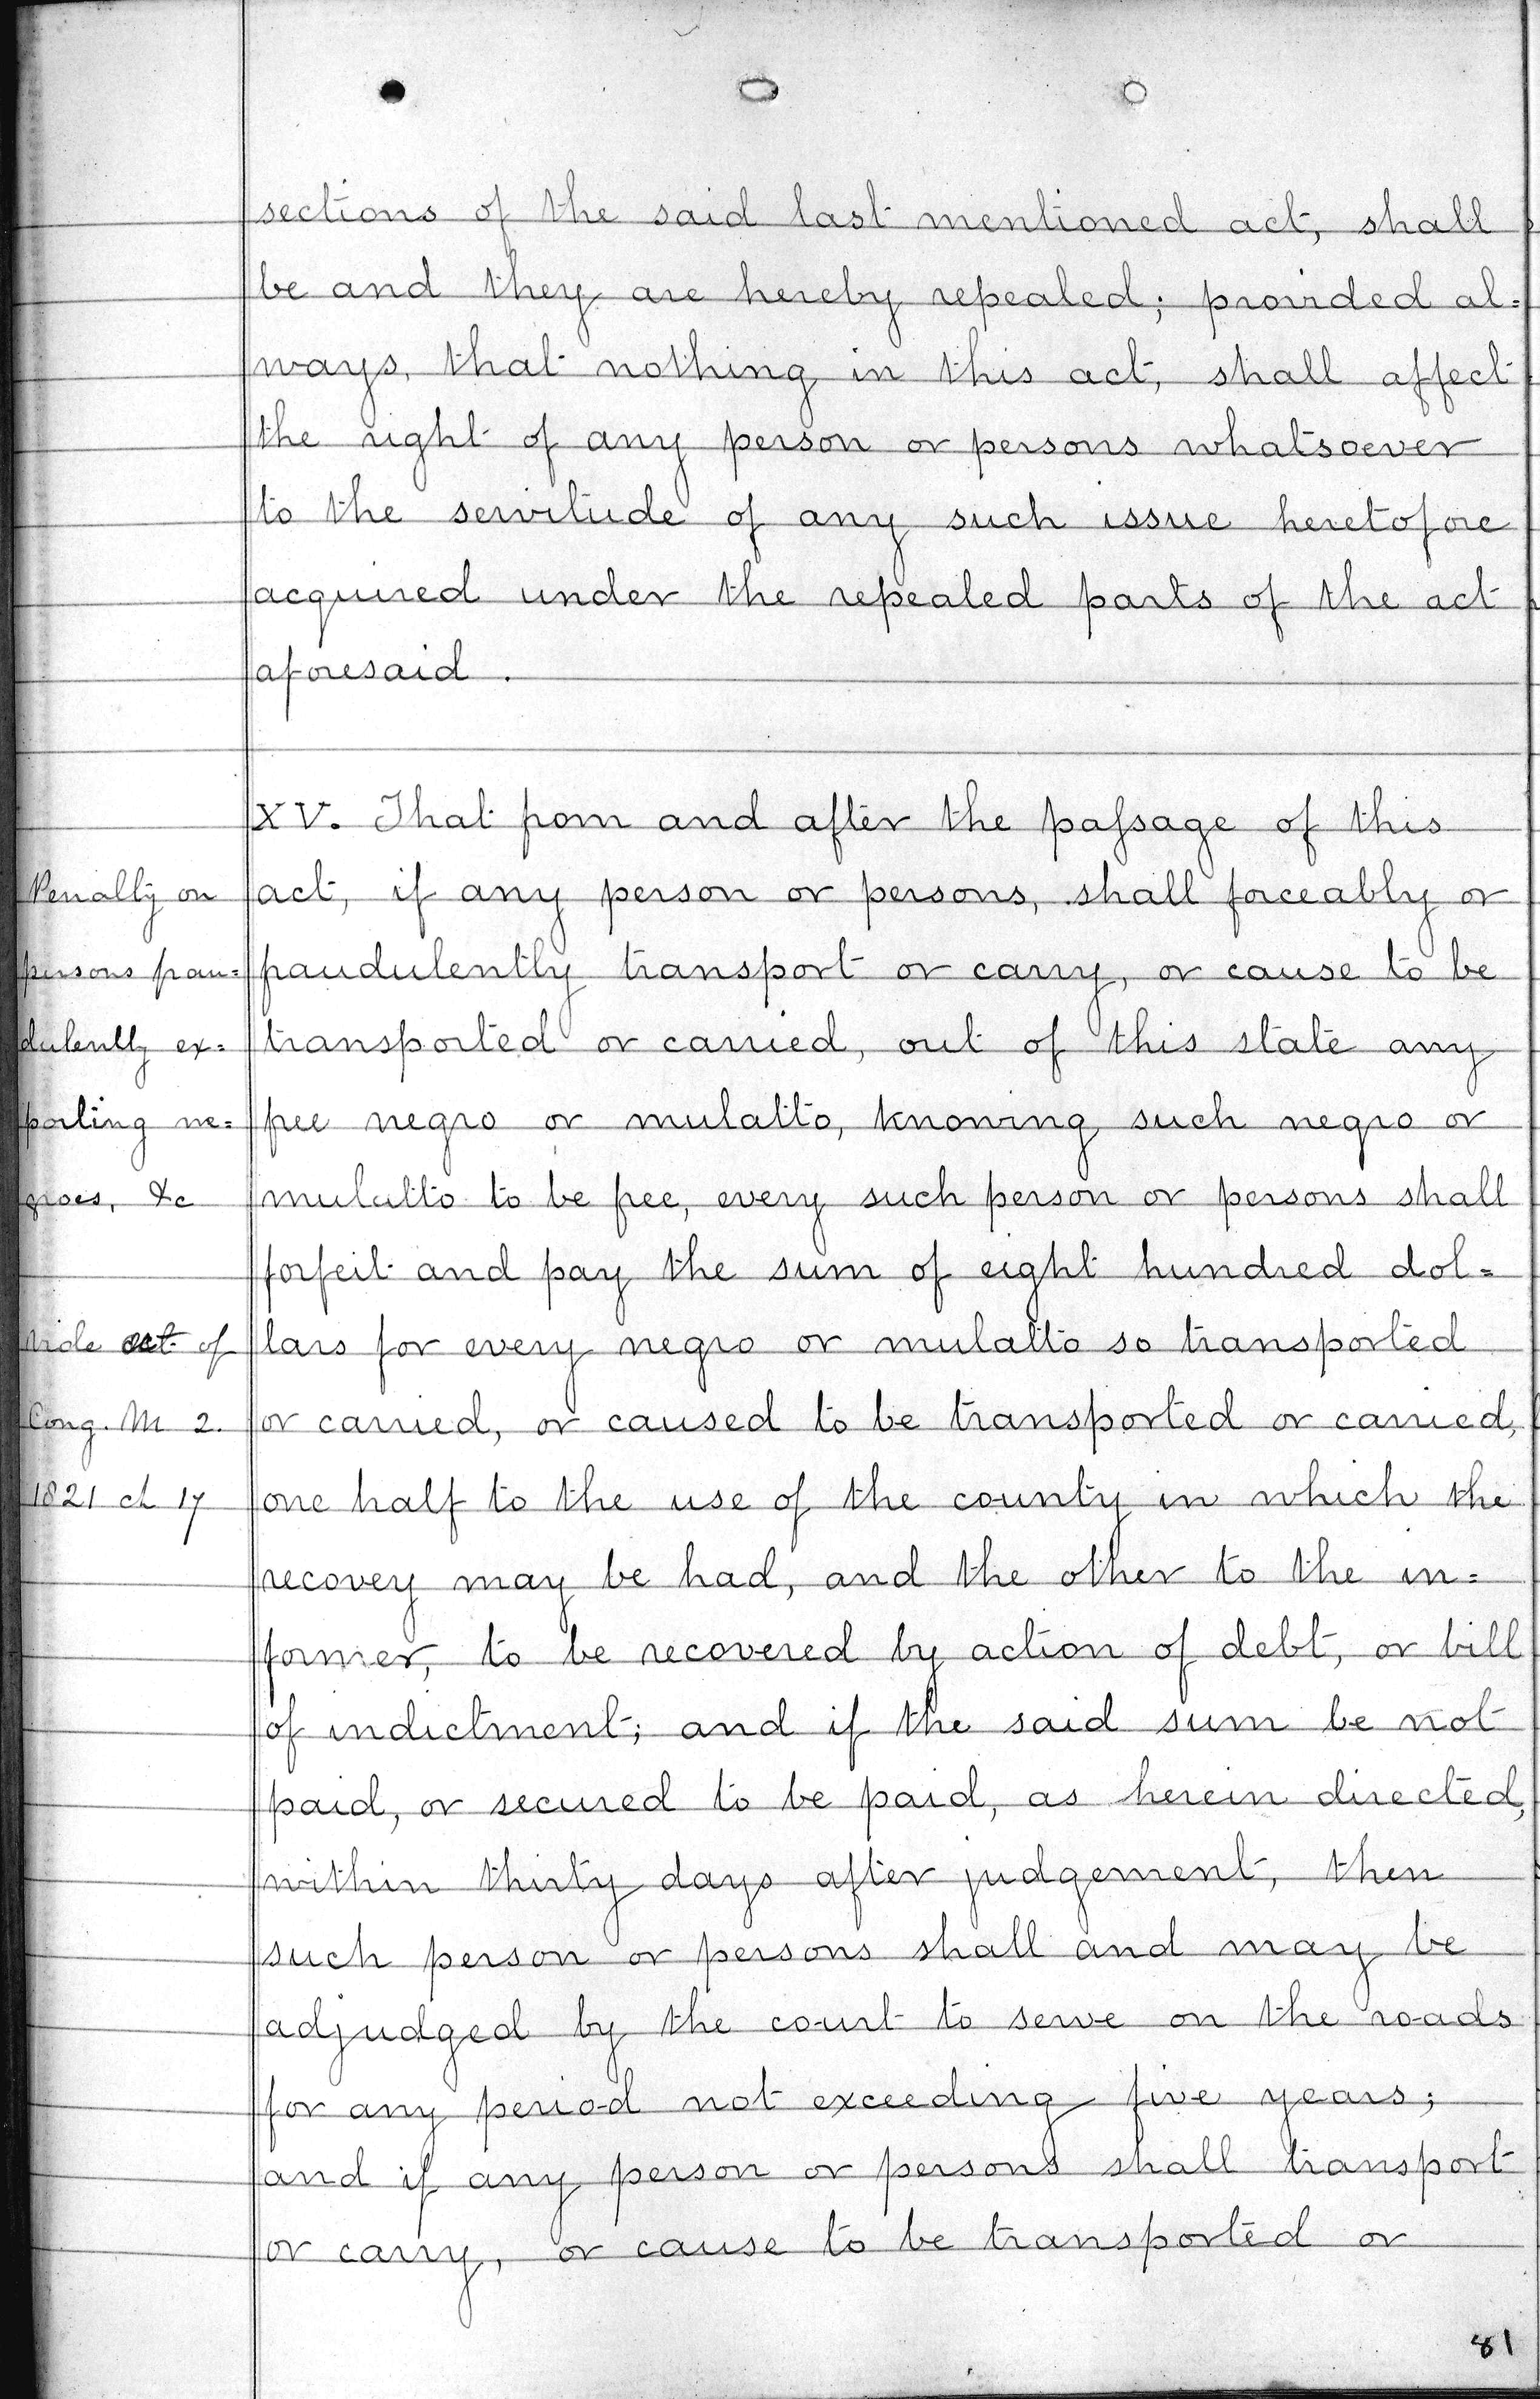 sections of the said last mentioned act, shall
be and they are hereby repealed; provided al=
ways, that nothing in this act, shall affect
the right of any person or persons whatsoever
to the servitude of any such issue heretofore
acquired under the repealed parts of the act
aforesaid.
XV. That from and after the passage of this
act, if any person or persons, shall forceably or
fraudulently transport or carry, or cause to be
transported or carried, out of this state any
free negro or mulatto, knowing such negro or
mulatto to be free, every such person or persons shall
forfeit and pay the sum of eight hundred dol=
lars for every negro or mulatto so transported
or carried, or caused to be transported or carried,
one half to the use of the county in which the
recovey may be had, and the other to the in=
former, to be recovered by action of debt, or bill
of indictment; and if the said sum be not
paid, or secured to be paid, as herein directed,
within thirty days after judgement, then
such person or persons shall and may be
adjudged by the court to serve on the roads
for any period not exceeding five years;
and if any person or persons shall transport
or carry, or cause to be transported or
Penalty on
persons frau=
dulently ex=
porting ne=
groes, &c
vide act of
Cong. M 2.
1821 ch 17
81